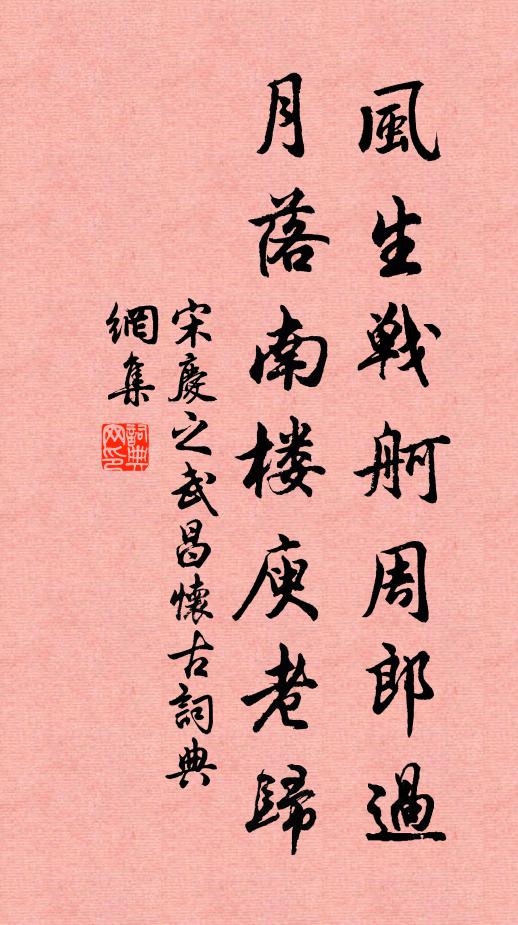 風生戦舸周郎過
月落南楼庾老歸
宋慶之武昌懷古詞典
網集
詞典網印